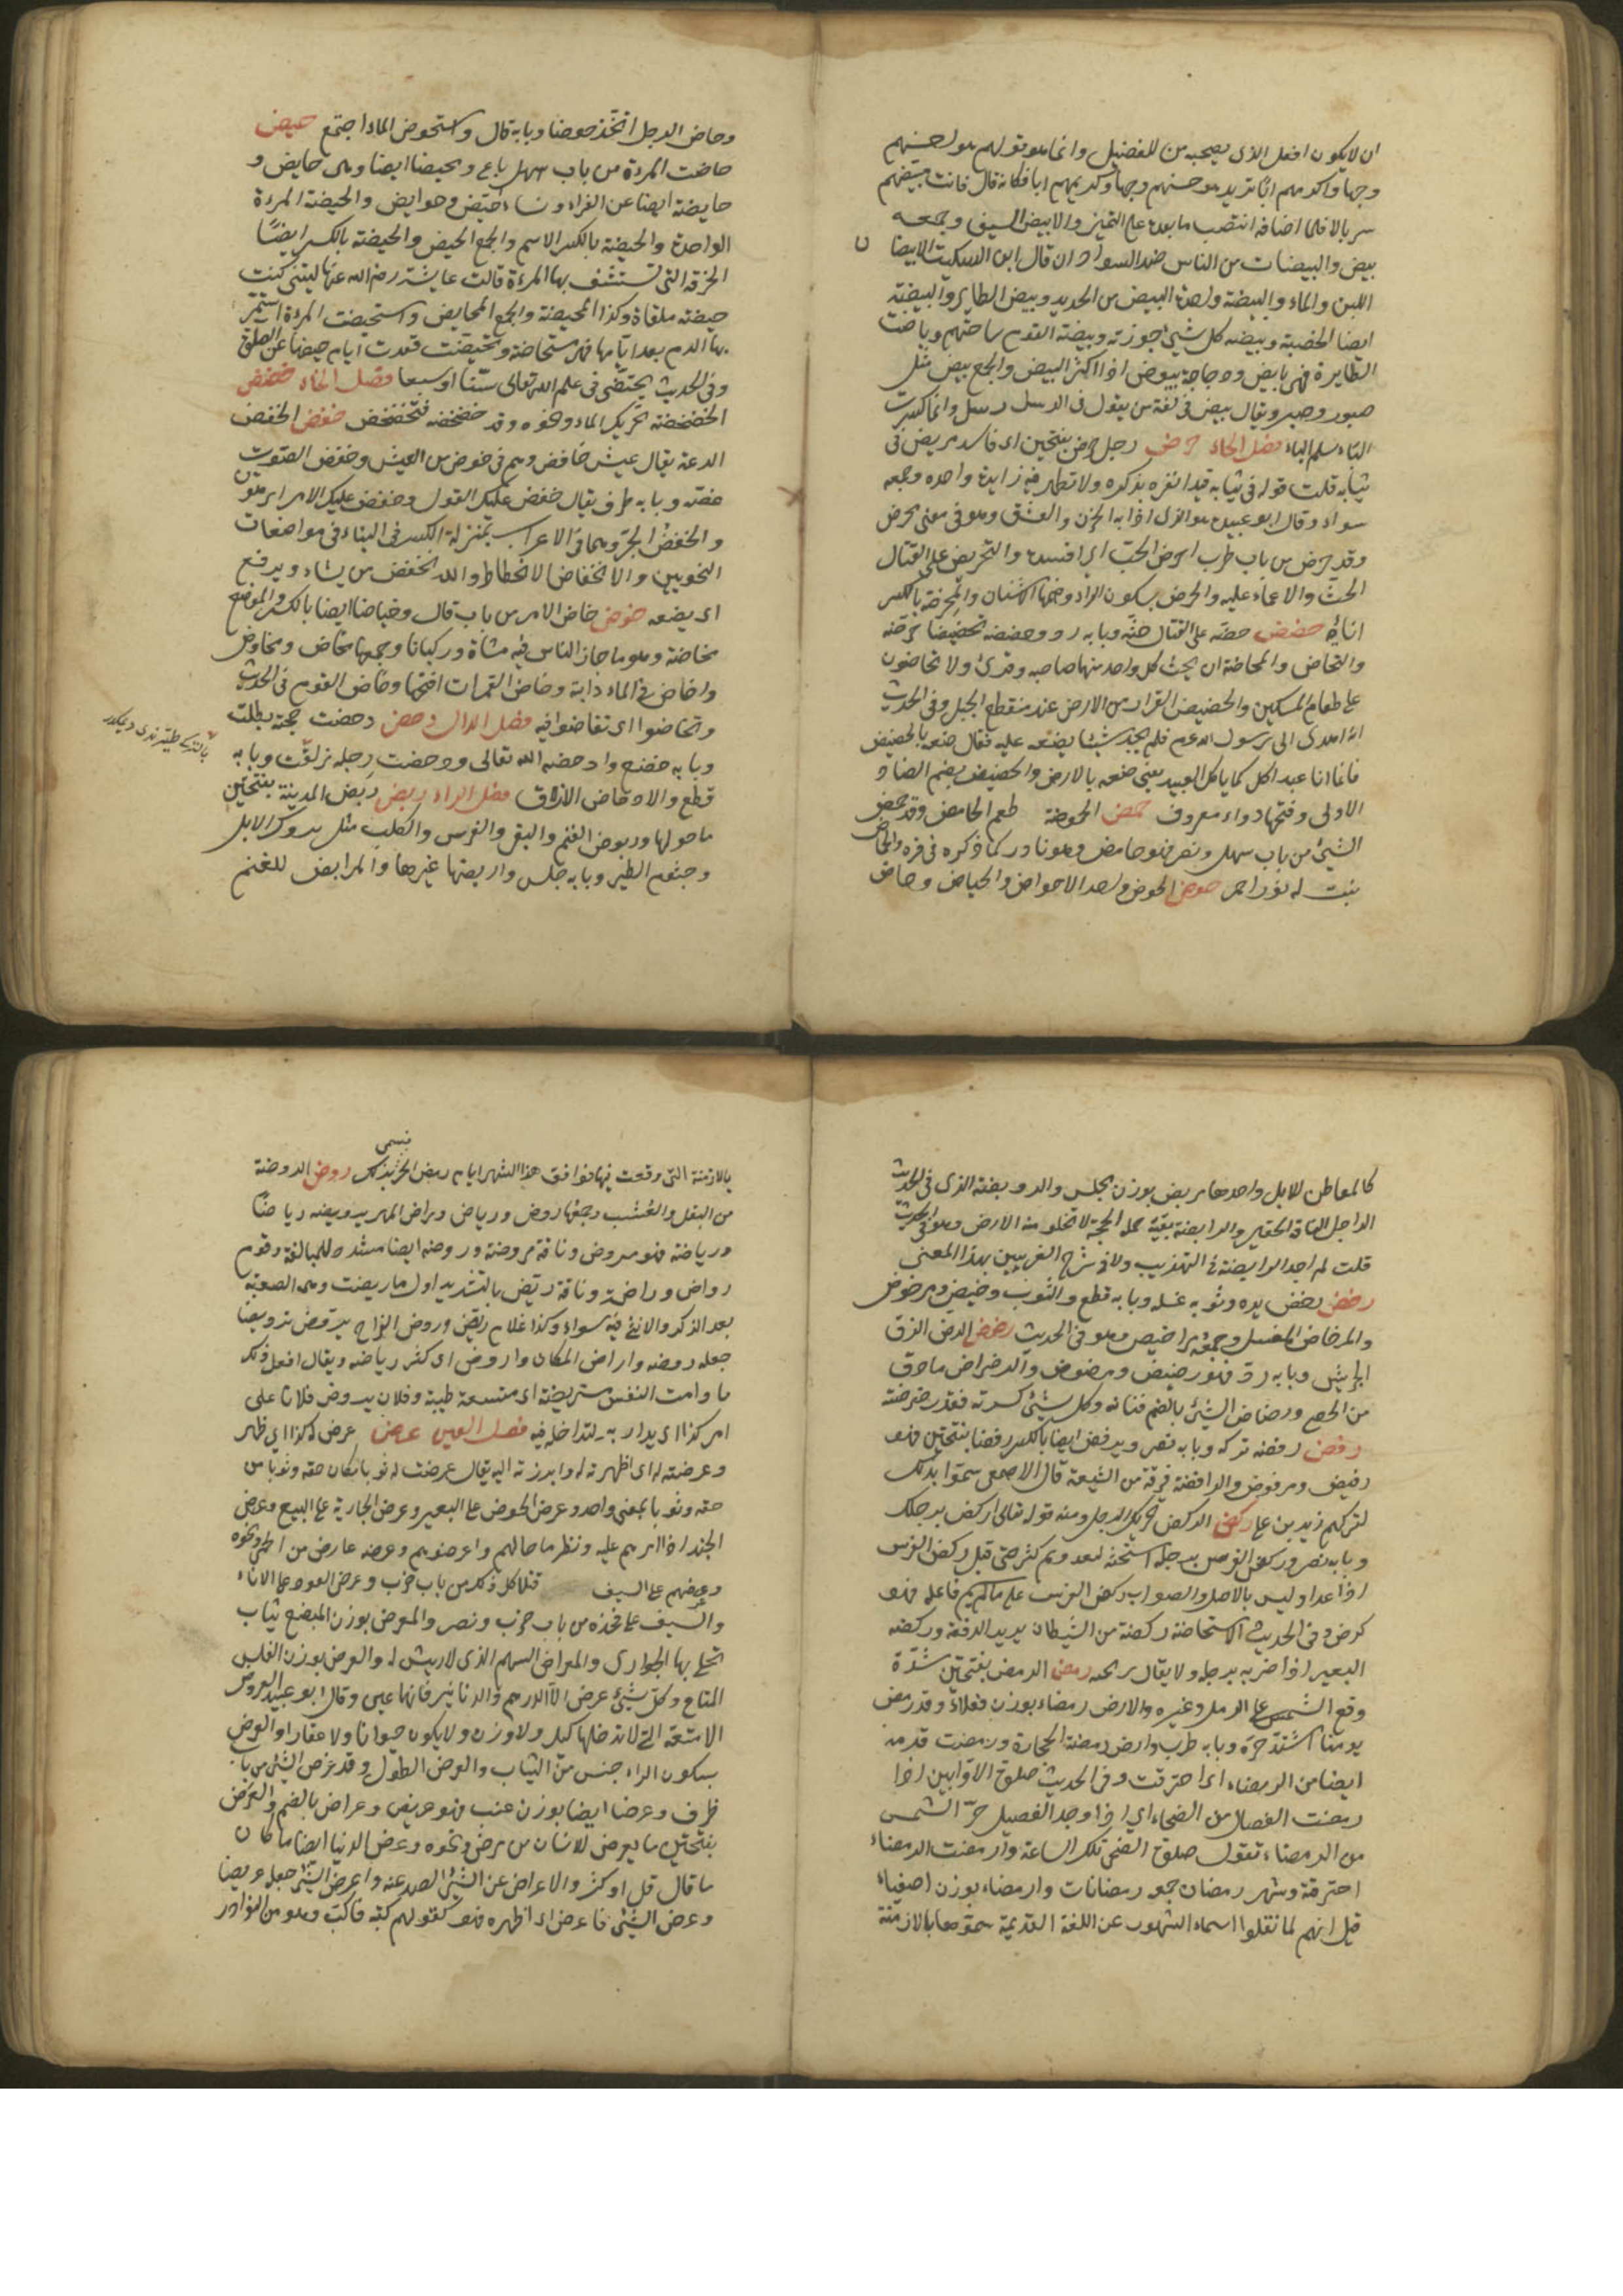 ان لا يكون افعل الذى يصحبه من للفضيل وانما هو قولهم هو احسنهم
وجها واكرمهم ابًا تريد هو حسنهم وجها وكريمهم ابا فكانه قال فانت مبيضهم
سربالا فلما اضافه انتصب ما بعده على التميز والابيض السيف وجمعه
بيض والبيضان من الناس ضد السودان قال ابن السكيت الابيضان
اللبن والماء والبيضة واحدة البيض من الحديد وبيض الطاير والبيضة
ايضا الخصية وبيضه كل شيئ حوزته وبيضة القوم ساحتهم وباضت
الطايرة فهى بايض ودجاجة بيوض اذا اكثر البيض والجمع بيض مثل
صبور وصبر ويقال بيض فى لغة من يقول فى الرسل رسل وانما كسرت
الباء لتسلم الياء فصل الحاء حرض رجل حرض بفتحتين اى فاسد مريض فى
ثيابه قلت قوله فى ثيابه قيد انفرد بذكره ولا تظهر فيه زايدة واحده وجمعه
سواء وقال ابو عبيدة هو الذى اذابه الحزن والعشق وهو فى معنى محرض
وقد حرض من باب طرب احرض الحب اى افسده والتحريض على القتال
الحث والاحماء عليه والحرض بسكون الراء وضمها الاشنان والمحرضة بالكسر
اناؤه حضض حضه على القتال حثه وبابه رد وحضضه تحضيضا حرضه
والتحاض والمحاضة ان يحث كل واحد منهما صاحبه وقرئ ولا تحاضون
على طعام المسكين والحضيض القرار من الارض عند منقطع الجبل وفى الحديث
انه اهدى الى رسول الله عم فلم يجد شيئا يضعه عليه فقال ضعه بالحضيض
فانما انا عبد اكل كما ياكل العبيد يعنى ضعه بالارض والحضض بضم الضاد
الاولى وفتحها دواء معروف حمض الحموضة طعم الحامض وقد حمض
الشيئ من باب سهل ونصر فهو حامض وهو نادر كما ذكره فى فره والحماض
نبت له نور احمر حوض الحوض واحد الاحواض والحياض وحاض
وحاض الرجل اتخذ حوضا وبابه قال واستحوض الماء اجتمع حيض
حاضت المرءة من باب سهل باع ومحيضا ايضا وهى حايض و
حايضة ايضا عن الفراء ونساء حيض وحوايض والحيضة المرءة
الواحدة والحيضة بالكسر الاسم والجمع الحيض والحيضة بالكسر ايضًا
الخرقة التى تستثفر بها المرءة قالت عايشة رضى الله عنها ليتنى كنت
حيضة ملقاة وكذا المحيضة والجمع المحايض واستحيضت المرءة استمر
بها الدم بعد ايامها فهى مستحاضة وتحيضت قعدت ايام حيضها عن الصلوة
وفى الحديث تحيضى فى علم الله تعالى ستا او سبعا فصل الخاء خضخض
الخضخضة تحريك الماء ونحوه وقد خضخضه فتخضخض خفض الخفض
الدعة يقال عيش خافض وهم فى خفض من العيش وخفض الصوت
غضه وبابه ضرب يقال خفض عليك القول وخفض عليك الامر اى هون
والخفض الجر وهما فى الاعراب بمنزلة الكسر فى البناء فى مواضعات
النحويين والانخفاض الانحطاط والله يخفض من يشاء ويرفع
اى يضعه خوض خاض الماء من باب قال وخياضا ايضا بالكسر والموضع
مخاضة وهو ما جاز الناس فيه مشاة وركبانا وجمعها مخاض ومخاوض
واخاض فى الماء دابة وخاض الغمرات اقتحمها وخاض القوم فى الحديث
وتخاضوا اى تفاوضوا فيه فصل الدال دحض دحضت حجته بطلت
وبابه خضع وادحضه الله تعالى ودحضت رجله زلقت وبابه
قطع والادحاض الازلاق فصل الراء ربض ربض المدينة بفتحتين
ما حولها وربوض الغنم والبقر والفرس والكلب مثل بروك الابل
وجثوم الطير وبابه جلس واربضها غيرها والمرابض للغنم
كالمعاطن للابل واحدها مربض بوزن مجلس والرويبضة الذى فى الحديث
الرجل التافه الحقير والرابضة بقية حملة الحجة لا تخلو منهم الارض وهو فى الحديث
قلت لم اجد الرابضة فى التهذيب ولا فى شرح الغريبين بهذا المعنى
رحض رحض يده وثوبه غسله وبابه قطع والثوب رحيض ومرحوض
والمرحاض المغتسل وجمعه مراحيض وهو فى الحديث رضض الرض الدق
الجريش وبابه رد فهو رضيض ومرضوض والرضراض ما دق
من الحصى ورضاض الشيئ بالضم فتاته وكل شيئ كسرته فقد رضرضته
رفض رفضه تركه وبابه نصر ويرفض ايضا بالكسر رفضا بفتحتين فهو
رفيض ومرفوض والرافضة فرقة من الشيعة قال الاصمعى سموا بذلك
لتركهم زيد بن على ركض الركض تحريك الرجل ومنه قوله تعالى اركض برجلك
وبابه نصر وركض الفرس برجله استحثه ليعدو ثم كثر حتى قيل ركض الفرس
اذا عدا وليس بالاصل والصواب ركض الفرس على ما لم يسم فاعله فهو
مركوض وفى الحديث الاستحاضة ركضة من الشيطان يريد الدفعة وركضه
البعير اذا ضربه برجله ولا يقال رمحه رمض الرمض بفتحتين شدة
وقع الشمس على الرمل وغيره والارض رمضاء بوزن فعلاء وقد رمض
يومنا اشتد حره وبابه طرب وارض رمضة الحجارة ورمضت قدمه
ايضا من الرمضاء اى احترقت وفى الحديث صلوة الاوابين اذا
رمضت الفصال من الضحاء اى اذا وجد الفصيل حر الشمس
من الرمضاء تقول صلوة الضحى تلك الساعة وارمضت الرمضاء
احترقه وشهر رمضان جمع رمضانات وارمضاء بوزن اصفياء
قيل انهم لما نقلوا اسماء الشهور عن اللغة القديمة سموها بالازمنة
فسمى
بالازمنة التى وقعت فيها فوافق هذا الشهر ايام رمض الحر بذلك روض الروضة
من البقل والعشب وجمعها روض ورياض وراض المهر يروضه رياضا
ورياضة فهو مروض وناقة مروضة وروضه ايضا مشدد للمبالغة وقوم
رواض وراضة وناقة ريض بالتشديد اول ما ريضت وهى الصعبة
بعد الذكر والانثى فيه سواء وكذا غلام ريض وروض القراح ترويضا
جعله روضه واراض المكان واروض اى كثر رياضه ويقال افعل ذلك
ما دامت النفس مستريضة اى متسعة طيبة وفلان يروض فلانا على
امر كذا اى يداريه ليدخله فيه فصل العين عرض عرض له كذا اى ظهر
وعرضته له اى اظهرته له وابرزته اليه يقال عرضت له ثوبا مكان حقه وثوبا من
حقه وثوبا بمعنى واحد وعرض الحوض على البعير وعرض الجارية على البيع وعرض
الجند اذا امرهم عليه ونظر ما حالهم واعترضهم وعرضه عارض من الحمى ونحوه
وعرضهم على السيف قتلا كل ذلك من باب ضرب وعرض العود على الاناء
والسيف على فخذه من باب ضرب ونصر والمعرض بوزن المبضع ثياب
تجلى بها الجوارى والمعراض السهم الذى لا ريش له والعرض بوزن الفلس
المتاع وكل شيئ عرض الا الدرهم والدنانير فانها عين وقال ابو عبيد العروض
الامتعة التى لا يدخلها كيل ولا وزن ولا يكون حيوانا ولا عقارا والعرض
بسكون الراء جنس من الثياب والعرض الطول وقد عرض الشيئ من باب
ظرف وعرضا ايضا بوزن عنب فهو عريض وعراض بالضم والعرض
بفتحتين ما يعرض للانسان من مرض ونحوه وعرض الدنيا ايضا ما كان
من مال قل او كثر والاعراض عن الشيئ الصد عنه واعرض الشيئ جعله عريضا
وعرض الشيئ فاعرض اى اظهره فظهر كقولهم كبه فاكب وهو من النوادر